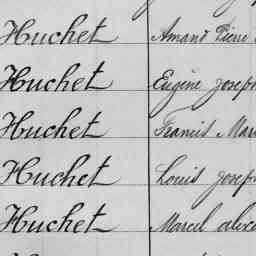 Huchet Amand Pierre
Huchet Eugène Joseph
Huchet Francis Mar
Huchet Louis Joseph
Huchet Marcel Alex